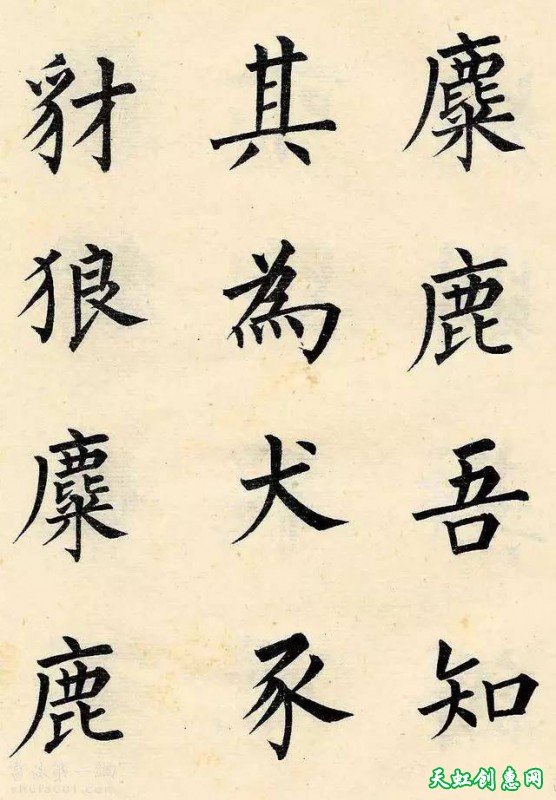 麋鹿吾知
其為犬豕
豺狼麋鹿
天虹创惠网